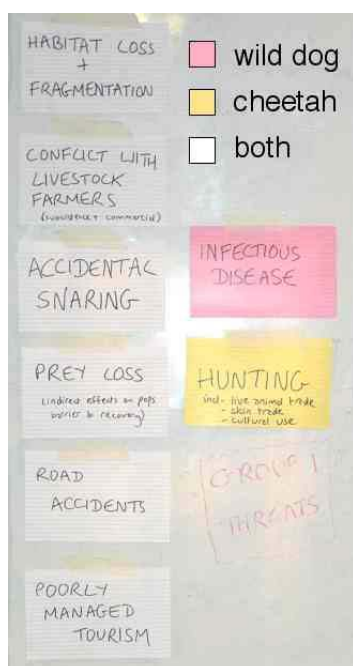 HABITAT LOSS
+
FRAGMENTATION
CONFLICT WITH
LIVESTOCK
FARMERS
(subsistence + commercial)
ACCIDENTAL
SNARING
PREY LOSS
(indirect effects on pops
barrier to recovery)
ROAD
ACCIDENTS
POORLY
MANAGED
TOURISM
wild dog
cheetah
both
INFECTIOUS
DISEASE
HUNTING
incl - live animal trade
- skin trade
- cultural use
GROUP 1
THREATS